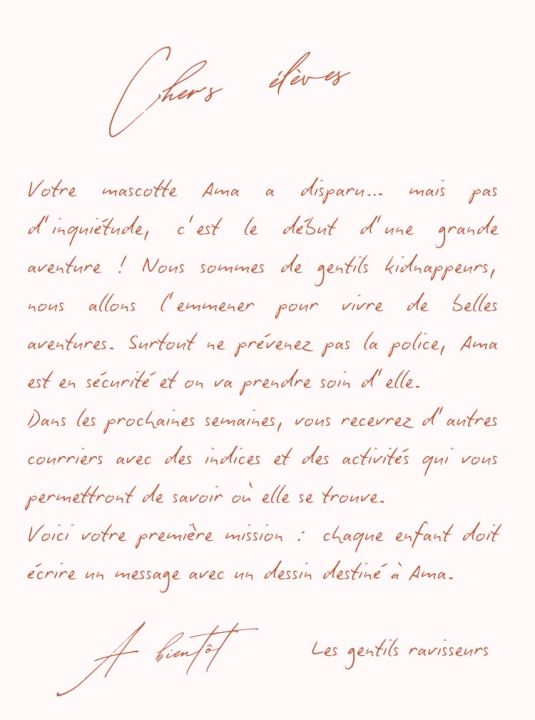 Chers élèves
Votre mascotte Ama a disparu... mais pas
d'inquiétude, c'est le début d'une grande
aventure ! Nous sommes de gentils kidnappeurs,
nous allons l'emmener pour vivre de belles
aventures. Surtout ne prévenez pas la police, Ama
est en sécurité et on va prendre soin d'elle.
Dans les prochaines semaines, vous recevrez d'autres
courriers avec des indices et des activités qui vous
permettront de savoir où elle se trouve.
Voici votre première mission : chaque enfant doit
écrire un message avec un dessin destiné à Ama.
A bientôt
Les gentils ravisseurs